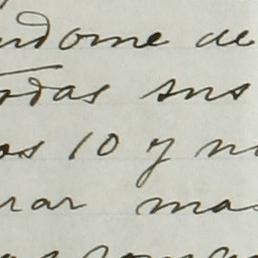 ndome de
odas sus
os 10 y n
rar mas